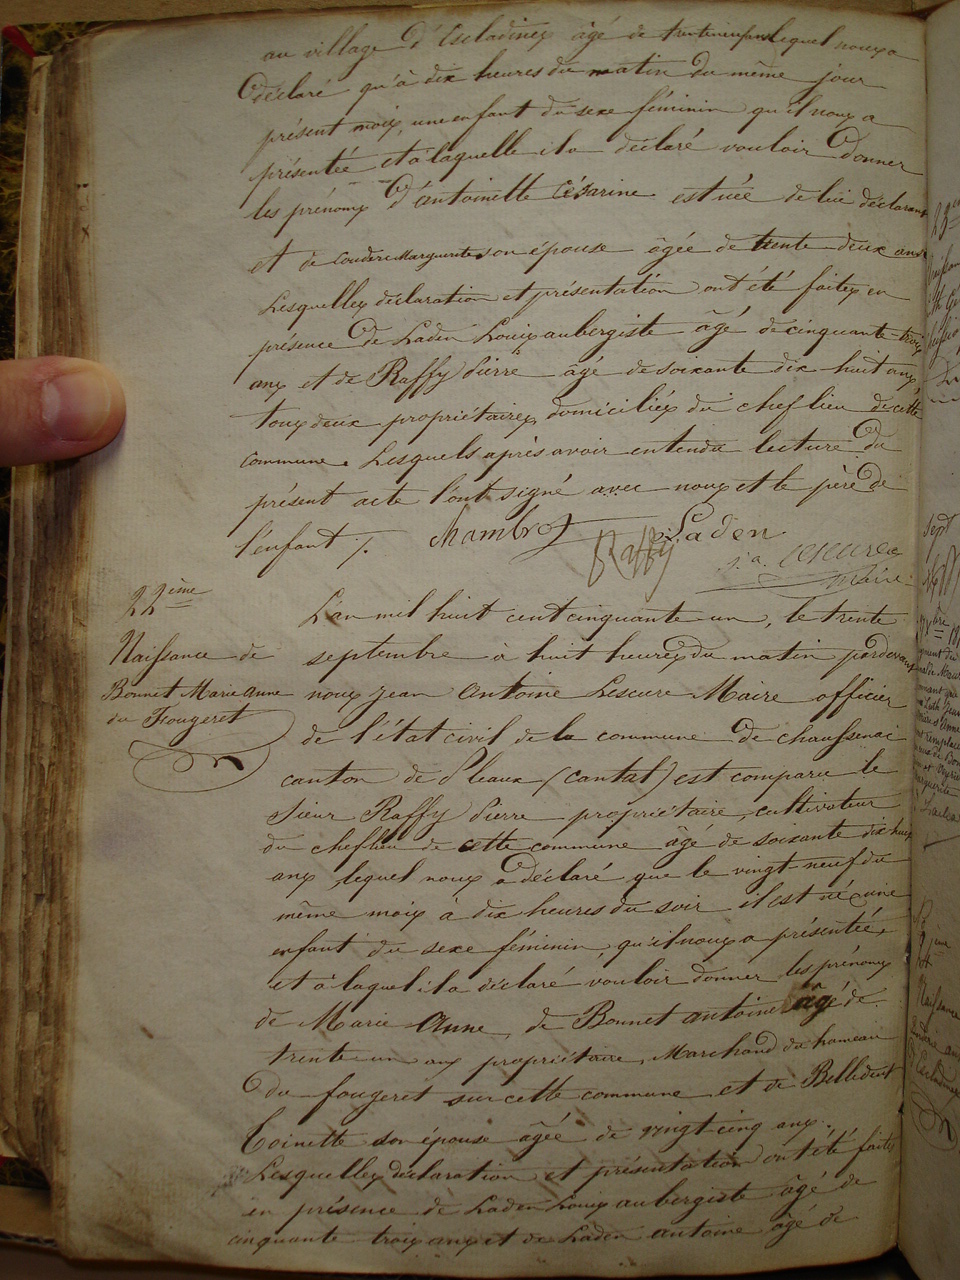 au village d'Escladines âgé de trente un ans lequel nous a
déclaré qu'à dix heures du matin du même jour
présent mois, une enfant du sexe féminin qu'il nous a
présentée et à laquelle il a déclaré vouloir donner
les prénoms d'antoinette Césarine est née de lui déclarant
et de Couderc Marguerite son épouse âgée de trente deux ans
Lesquelles déclaration et présentation ont été faites en
présence de Laden Louis aubergiste âgé de cinquante trois
ans et de Raffy Pierre âgé de soixante dix huit ans
tous deux propriétaires domiciliés du chef lieu de cette
commune. Lesquels après avoir entendu lecture du
présent acte l'ont signé avec nous et le père de
l'enfant /.
Chambre Laden
Raffy
j. a. Lescure
maire
22ième
Naissance de
Bonnet Marie anne
du Fougeret
L'an mil huit cent cinquante un, le trente
septembre à huit heures du matin pardevant
nous jean antoine Lescure Maire officier
de l'état civil de la commune de chaussenac
canton de Pleaux (cantal) est comparu le
Sieur Raffy Pierre propriétaire cultivateur
du chef lieu de cette commune âgé de soixante dix huit
ans lequel nous a déclaré que le vingt neuf du
même mois à dix heures du soir il est né une
enfant du sexe féminin, qu'il nous a présentée,
et à laquel il a déclaré vouloir donner les prénoms
de Marie Anne, de Bonnet antoine âgé de
trente un ans propriétaire, Marchand du hameau
du fougeret sur cette commune et de Bellident
Toinette son épouse âgée de vingt cinq ans.
Lesquelles déclaration et présentation ont été faites
en présence de Laden Louis aubergiste âgé de
cinquante trois ans et de Laden antoine âgé de